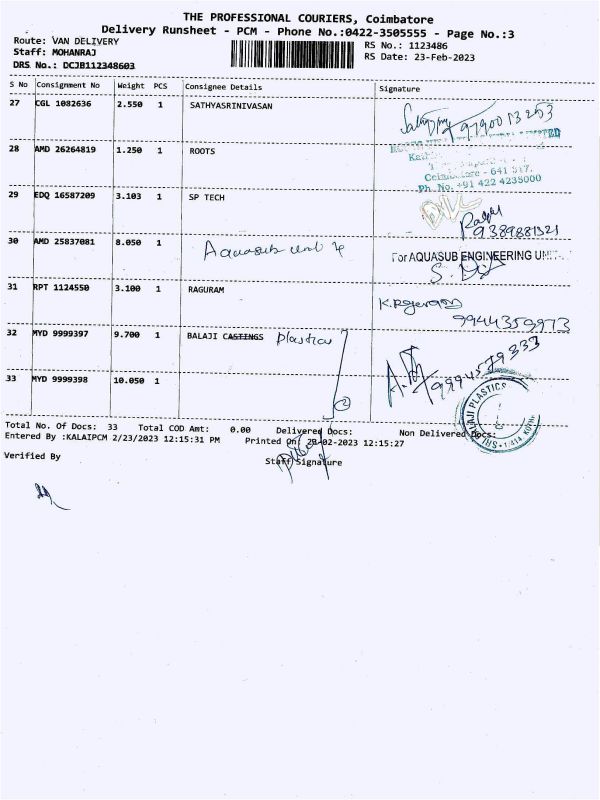 THE PROFESSIONAL COURIERS, Coimbatore
Delivery Runsheet - PCM - Phone No.:0422-3505555 - Page No.:3
Route: VAN DELIVERY
RS No.: 1123486
Staff: MOHANRAJ
RS Date: 23-Feb-2023
DRS No.: DCJB112348603
S No Consignment No Weight PCS Consignee Details Signature
27 CGL 1082636 2.550 1 SATHYASRINIVASAN
9790013253
28 AMD 26264819 1.250 1 ROOTS
Coimbatore - 641 017.
Ph. No. +91 422 4238000
29 EDQ 16587209 3.103 1 SP TECH
9389881321
30 AMD 25837081 8.050 1 Aquasub unit 4
For AQUASUB ENGINEERING UNIT
31 RPT 1124550 3.100 1 RAGURAM
9944359973
32 MYD 9999397 9.700 1 BALAJI CASTINGS plastics
9994579333
33 MYD 9999398 10.050 1
2
BALAJI PLASTICS
Total No. Of Docs: 33 Total COD Amt: 0.00 Delivered Docs: Non Delivered Docs:
Entered By :KALAIPCM 2/23/2023 12:15:31 PM Printed On: 23-02-2023 12:15:27
Verified By
Staff Signature